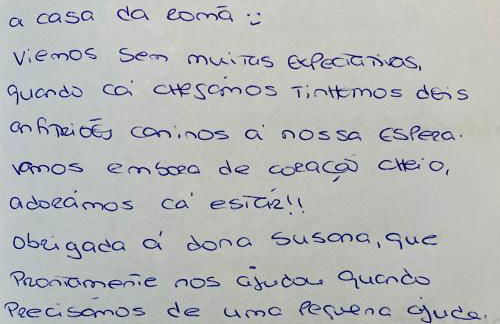 a casa da romã :)
Viemos sem muitas expectativas,
quando cá chegámos tinhamos dois
anfitriões caninos á nossa espera.
vamos embora de coração cheio,
adorámos cá estar!!
Obrigada á dona Susana, que
prontamente nos ajudou quando
precisámos de uma pequena ajuda.